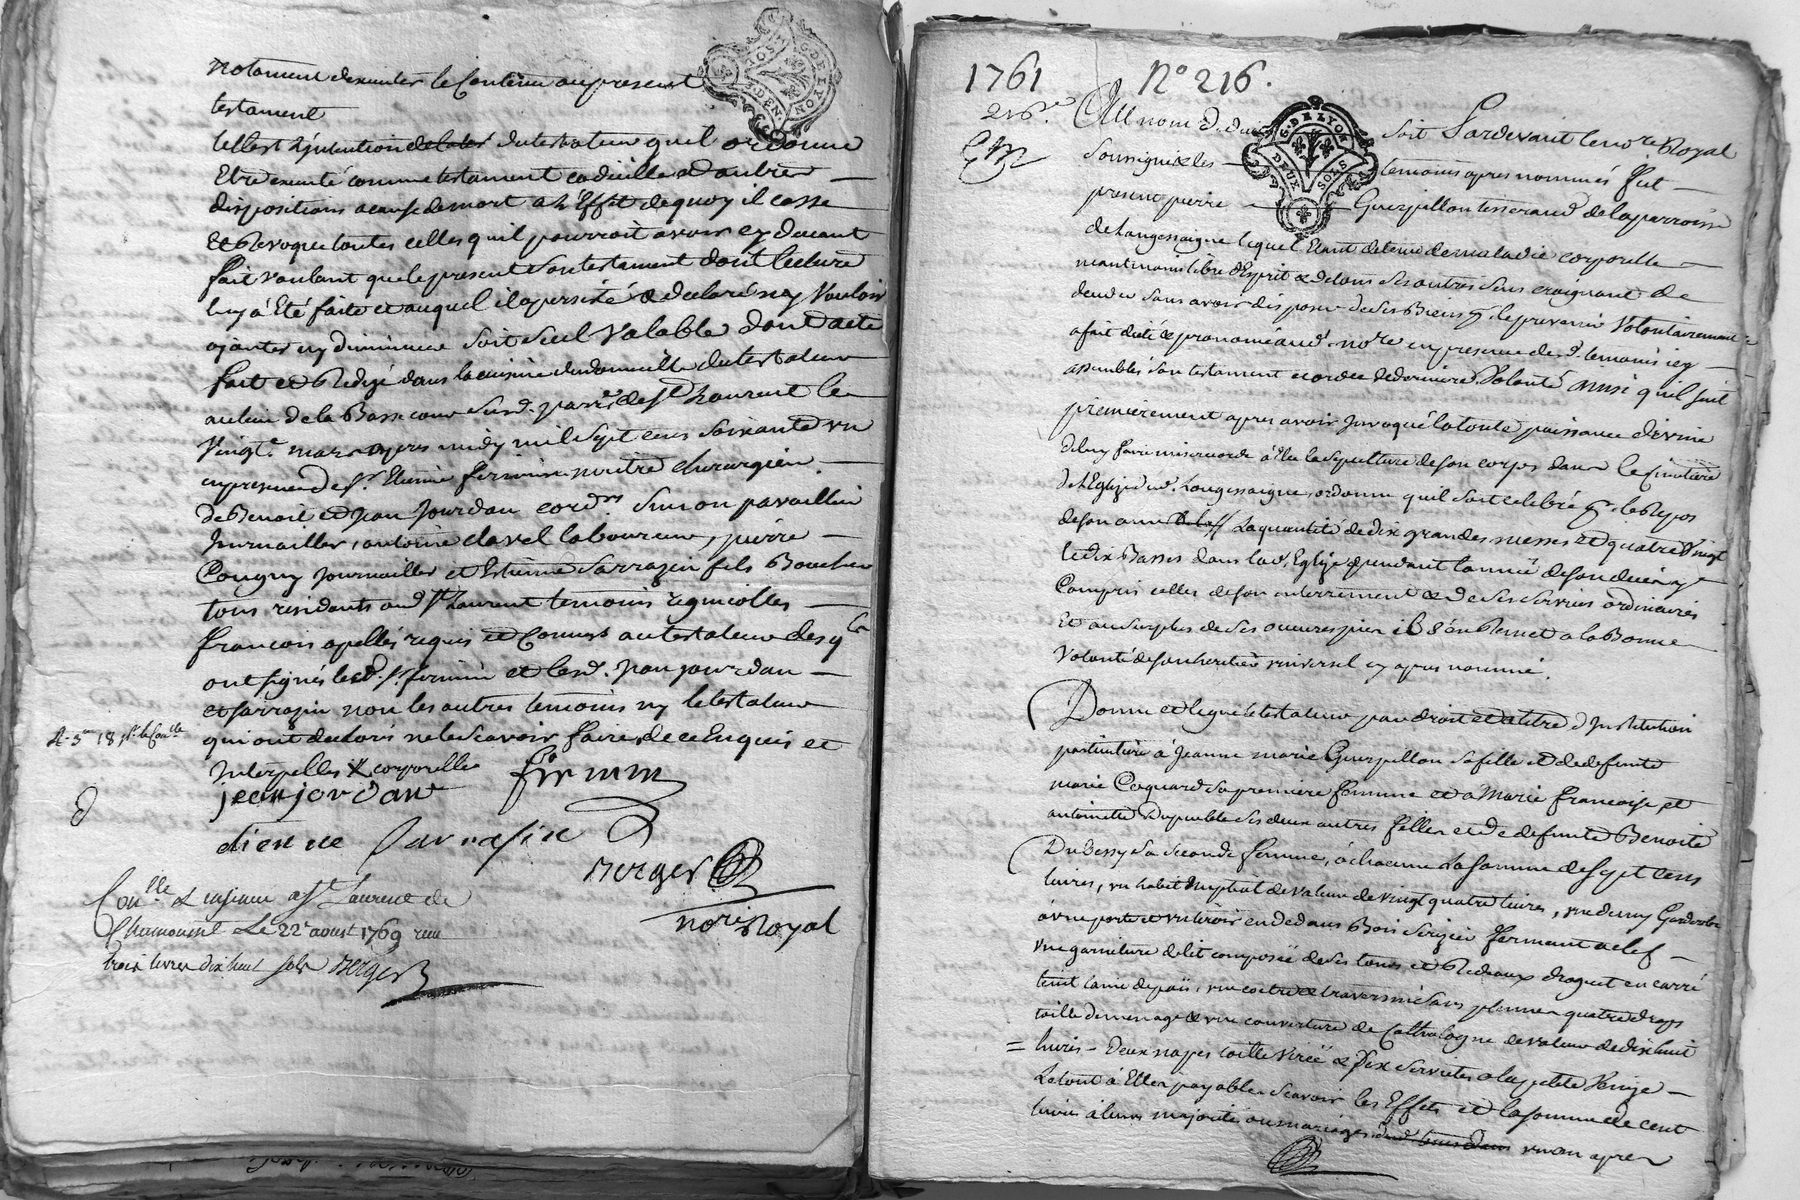 notament dexecuter le Contenu au present
testament
telle est l'jntention du testateur quil ordonne
Etre executé comme testament codicille ou d'autres
dispositions a cause de mort a l'Effet de quoy il casse
Et Revoque toutes celles quil pourroit avoir cy devant
fait voulant que le present son testament dont lecture
luy à Eté faite et auquel il a persisté & declaré n'ey Vouloir
ajouter ny diminuer soit seul Valable dont acte
fait et Redigé dans la cuisine du domicille du testateur
au lieu de la Basse cour susd. parr.e de St Laurent le
Vingt.e mars apres midy mil sept cens soixante un
en presence de Sr. Etienne fermin maitre chirurgien
de Benoit et Jean Jourdan cord.rs Simon pavaillier
Journaillier, antoine clavel laboureur, pierre
Cougny Journaillier et Estienne Sarrazin fils Boucher
tous residants aud St Laurent temoins regnicolles
francois apellés requis et Connus au testateur desq.ls
ont signés led. Sr. fermin et led. Jean jourdan
et sarrazin non les autres temoins ny le testateur
qui ont declarés ne le scavoir faire, de ce Enquis et
Interpellés & corporelle
jean jordan firmin
etienne Sarrasin
Berger
nore Royal
Con.lle et insinué a St Laurent de
Chamousset Le 22e aoust 1769 reçu
trois livres dix huit sols Berger
1761 No 216.
216.e
G. DE LYON
DEUX SOLS
Au nom de dieu soit Pardevant le no.re Royal
soussigné & les temoins apres nommés fut
present pierre Guerpillon tisserand de la parroisse
de Longessaigne lequel Etant detenu de maladie corporelle
neantmoins libre d'Esprit & de tous ses autres sens craignant de
deceder sans avoir disposé de ses Biens p. le prevenir Volontairement
a fait dicté & prononcé aud. no.re en presence de d. temoins icy
assemblés son testament et ordre de derniere Volonté Ainsi quil suit
premierement apres avoir Jnvoqué la toute puissance divine
de luy faire misericorde à Elu la sepulture de son corps dans le Cimetiere
de l'Eglize dud. Longessaigne, ordonne quil soit celebré p. le Repos
de son ame La quantité de dix grandes messes et quatre Vingt
dix Basses dans lad. Eglize & pendant l'année de son decès y
Compris celles de son enterrement & de ses services ordinaires
Et au surplus de ses oeuvres pies il s'en Remet a la Bonne
Volonté de son heritiere universel cy apres nommé.
Donne et legue le testateur par droit et a titre d'Institution
particuliere à Jeanne marie Guerpillon sa fille et de defunte
marie Coquard sa premiere femme et a Marie francoise, et
antoinette Dupuble ses deux autres filles et de defunte Benoite
Dubessy sa seconde femme, à chacune La somme de sept cens
livres, un habit Nuptial de valeur de vingt quatre livres, une demy Garderobe
à une porte et un tiroir en dedans Bois Serizier fermant a clef
une garniture de lit composée de ses tours et Redeaux droguet en carré
teint laine de païs, une coetre & traversin sans plumes quatre draps
toille de menage & une couverture de Catalogne de valeur de dix huit
livres - Deux nappes toille virée & Six serviettes a la petite Venize
Le tout à Elles payables scavoir les Effets et la somme de cent
livres à leur majorité ou mariage un an apres